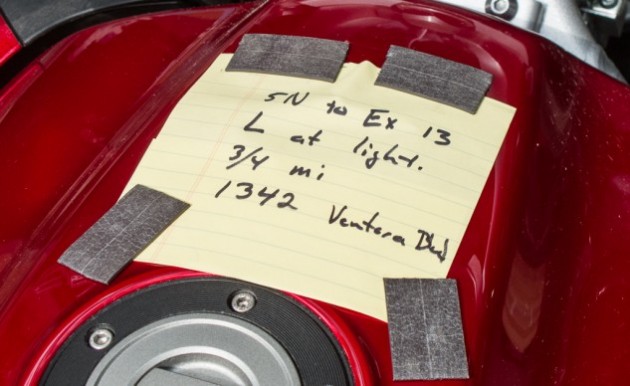 5N to Ex 13
L at light.
3/4 mi
1342 Ventera Blvd